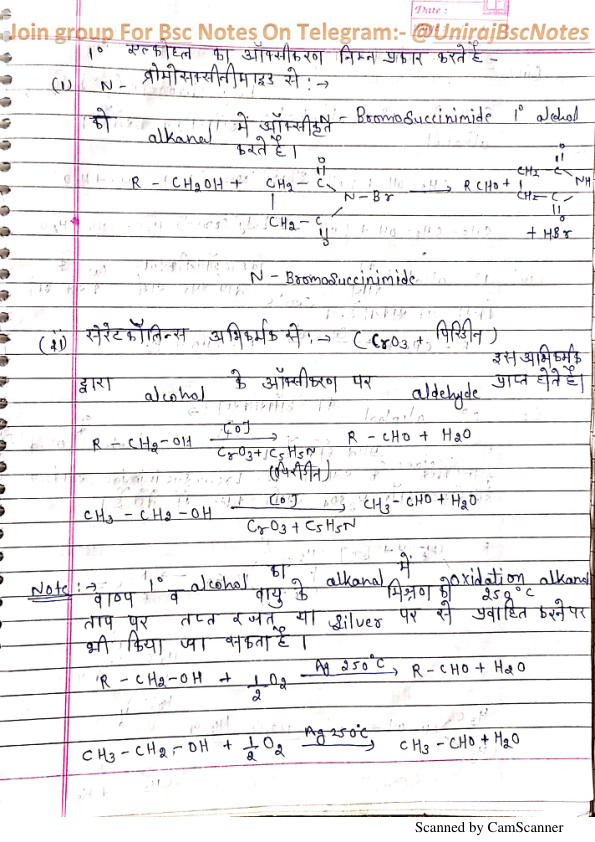 Date :
Join group For Bsc Notes On Telegram:- @UnirajBscNotes
1° एल्कोहल का ऑक्सीकरण निम्न प्रकार करते है -
(i) N- ब्रोमोसक्सीनीमाइड से : →
N - BromoSuccinimide 1° alcohol
को alkanal में ऑक्सीकृत करते है।
R - CH2OH + CH2 - C = O N - Br CH2 - C = O → RCHO + CH2 - C = O NH CH2 - C = O + HBr
N - BromoSuccinimide
(ii) सेरेटकॉलिन्स अभिकर्मक से : → (CrO3 + पिरिडीन) इस अभिकर्मक
द्वारा alcohol के ऑक्सीकरण पर aldehyde प्राप्त होते है।
R - CH2-OH [O] → CrO3 + C5H5N (पिरीडीन) R - CHO + H2O
CH3 - CH2 - OH [O] → CrO3 + C5H5N CH3 - CHO + H2O
Note : → 1° alcohol का alkanal में oxidation alkanal
वाष्प व वायु के मिश्रण को 250°C
ताप पर तप्त रजत या Silver पर से प्रवाहित करने पर
भी किया जा सकता है ।
R - CH2-OH + 1/2 O2 Ag 250°C → R - CHO + H2O
CH3 - CH2 - OH + 1/2 O2 Ag 250°C → CH3 - CHO + H2O
Scanned by CamScanner